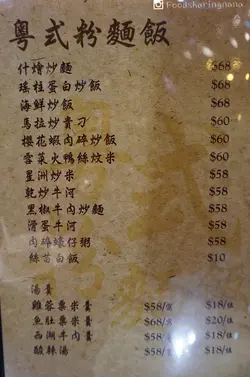 Foodsharingnana
粵式粉麵飯
什燴炒麵 $68
瑤柱蛋白炒飯 $68
海鮮炒飯 $68
馬拉炒貴刁 $60
櫻花蝦肉碎炒飯 $60
雪菜火鴨絲炆米 $60
星洲炒米 $58
乾炒牛河 $58
黑椒牛肉炒麵 $58
滑蛋牛河 $58
肉碎蠔仔粥 $58
絲苗白飯 $10
湯羹
雞蓉粟米羹 $58/ $18/
魚肚粟米羹 $68/ $20/
西湖牛肉羹 $58/ $18/
酸辣湯 $58/ $18/